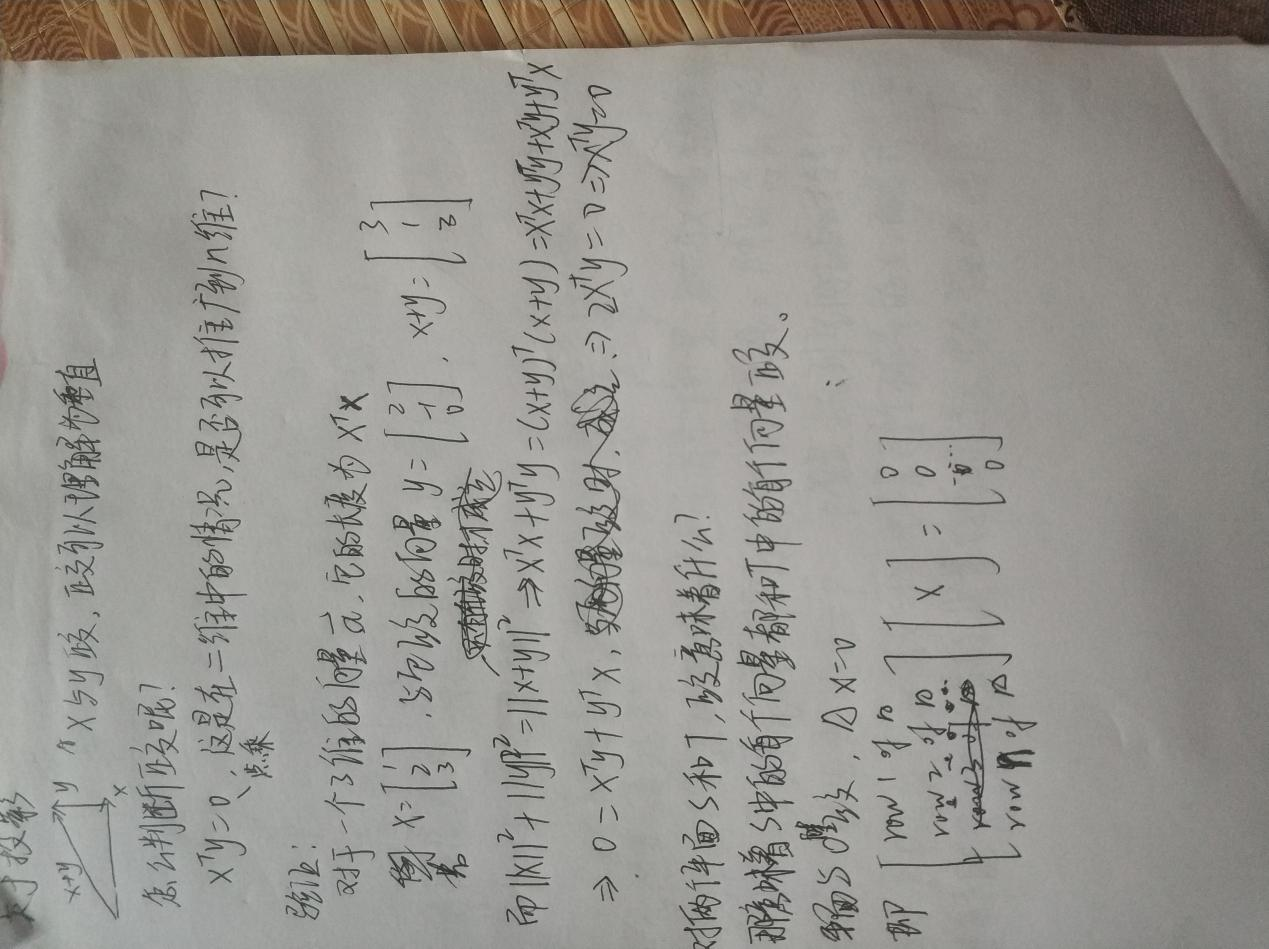 关于投影
x+y y x "x与y正交,正交可以理解为垂直
怎么判断正交呢?
xᵀy=0、这是在二维中的情况,是否可以推广到n维?
点乘
验证:
对于一个3维的向量a,它的长度为xᵀx
若 x=[1 2 3],与它正交的向量 y=[2 -1 0],x+y=[3 1 3]
而||x||²+||y||²=||x+y||² ⇒xᵀx+yᵀy=(x+y)ᵀ(x+y)=xᵀx+yᵀy+xᵀy+yᵀx
⇒ 0=xᵀy+yᵀx, ⇒ 2xᵀy=0 ⇒xᵀy=0
对两个平面S和T,正交意味着什么?
那意味着S中的每个向量都和T中的每个向量正交。
正交,Ax=0
即 [row 1 of A row 2 of A ... row n of A] [x] = [0 0 ... 0]